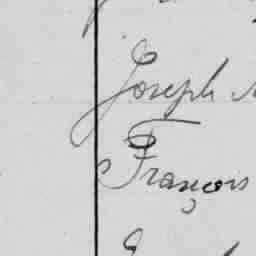 Joseph
François